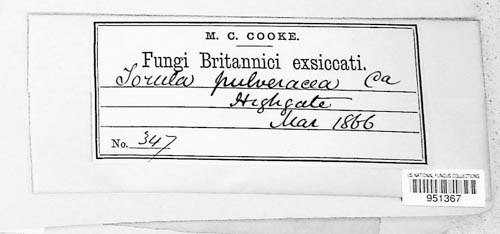 M. C. COOKE.
Fungi Britannici exsiccati.
Torula pulveracea Ca
Highgate
Mar 1866
No. 347
US NATIONAL FUNGUS COLLECTIONS
951367